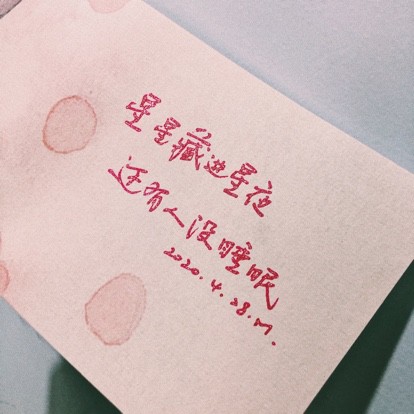 星星藏进星夜
还有人没睡眠
2020.4.28.M.